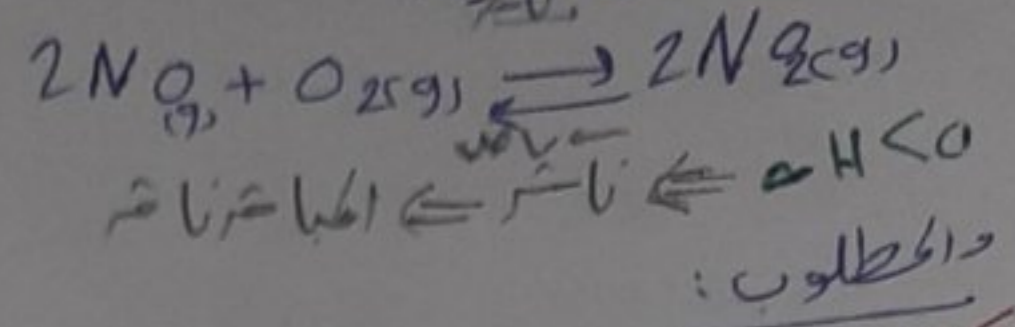 2NO(g) + O2(g) ⇌ 2NO2(g)
ΔH<0 ⇐ ناشر ⇐ المباشر ناشر
والمطلوب: